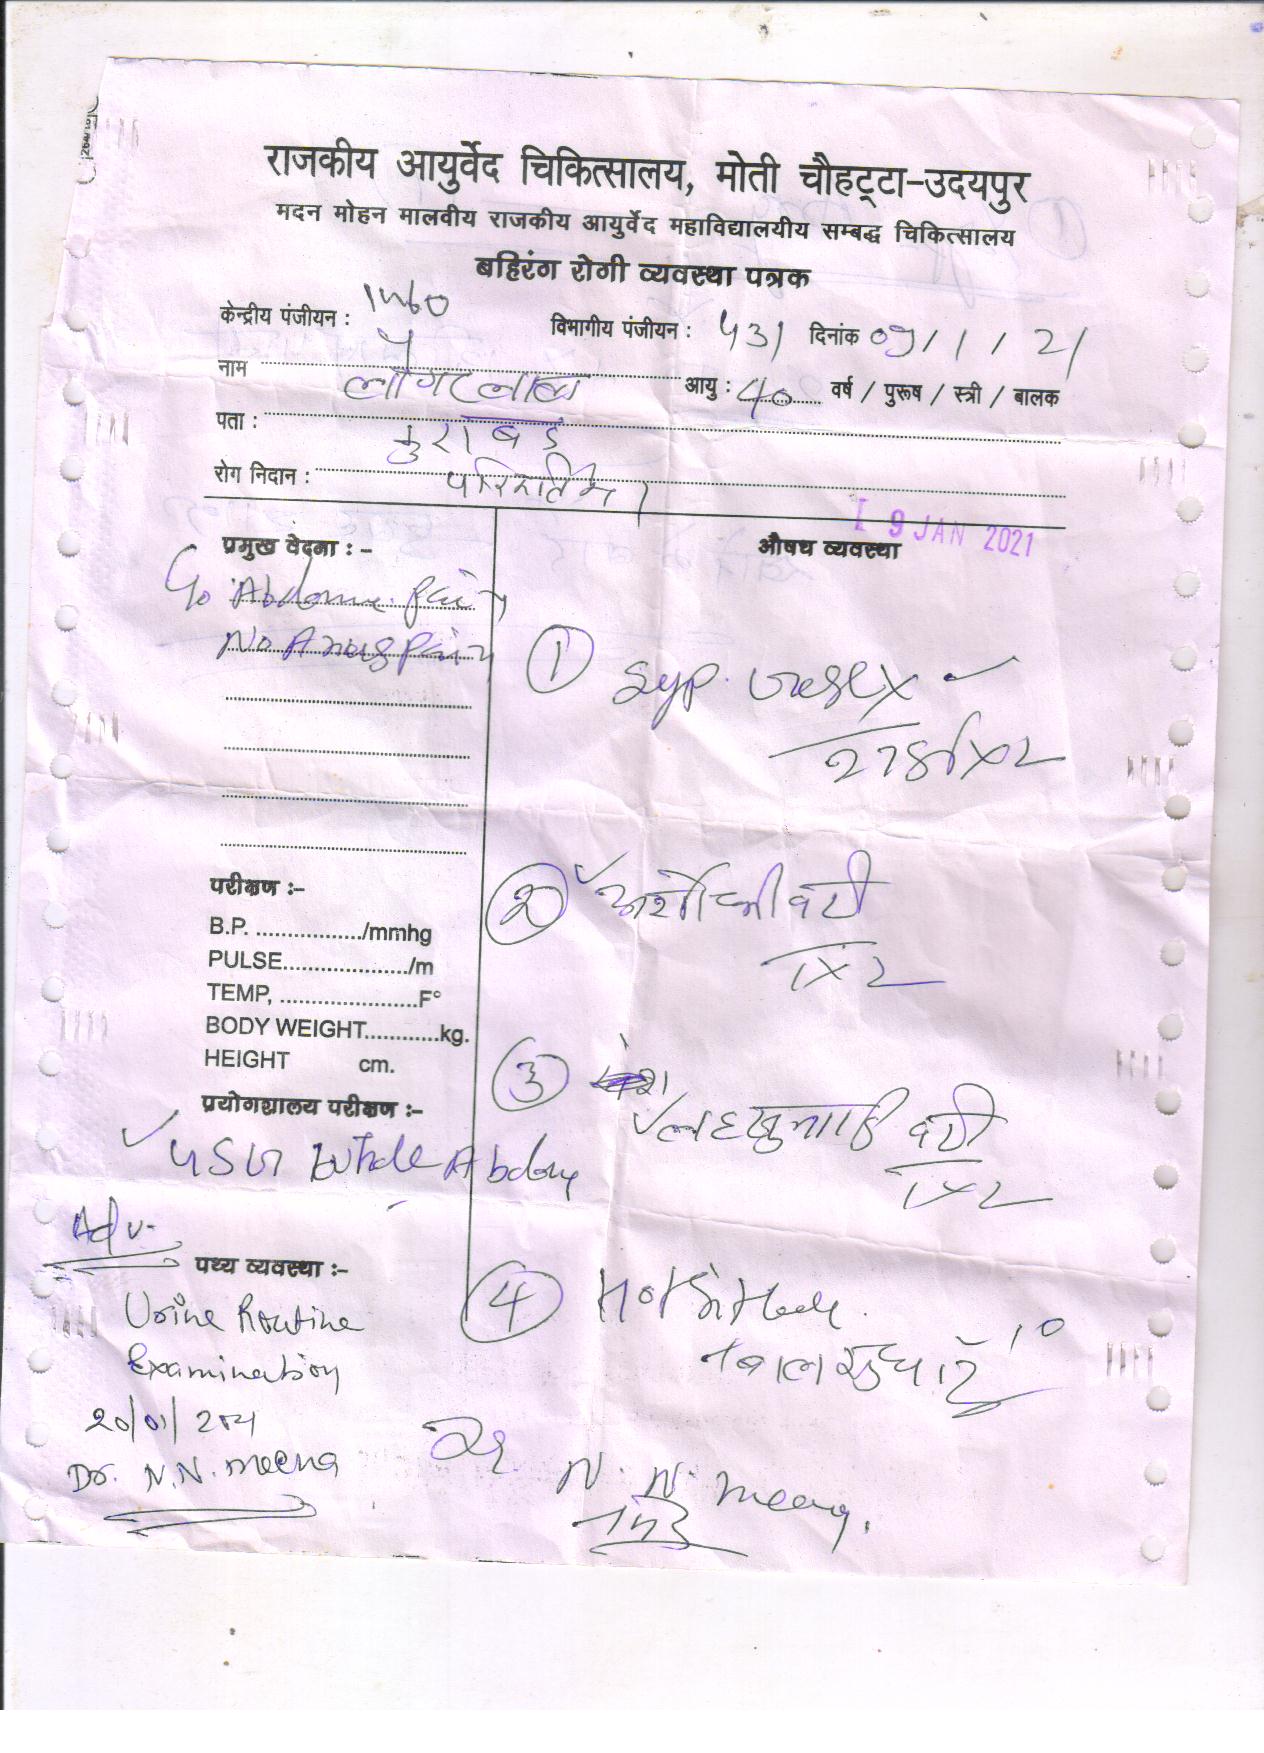 राजकीय आयुर्वेद चिकित्सालय, मोती चौहट्टा-उदयपुर
मदन मोहन मालवीय राजकीय आयुर्वेद महाविद्यालयीय सम्बद्ध चिकित्सालय
बहिरंग रोगी व्यवस्था पत्रक
केन्द्रीय पंजीयन :
विभागीय पंजीयन : 431 दिनांक 09/1/21
नाम
आयु : 40 वर्ष / पुरूष / स्त्री / बालक
पता : कुराबड
रोग निदान :
9 JAN 2021
प्रमुख वेदना : -
औषध व्यवस्था
C/o Abdome. Pain
No Anus Pain
① Syp.
② अर्शोघ्नी वटी
1x2
परीक्षण :-
B.P. ................./mmhg
PULSE..................../m
TEMP, ......................F°
BODY WEIGHT............kg.
HEIGHT cm.
③
वटी
1x2
प्रयोगशालय परीक्षण :-
USG Whole Abdom
Adv-
पथ्य व्यवस्था :-
④ Hot
Urine Routine
Examination
20/01/2021
Dr. N.N. meena
Dr. N. N. meena.